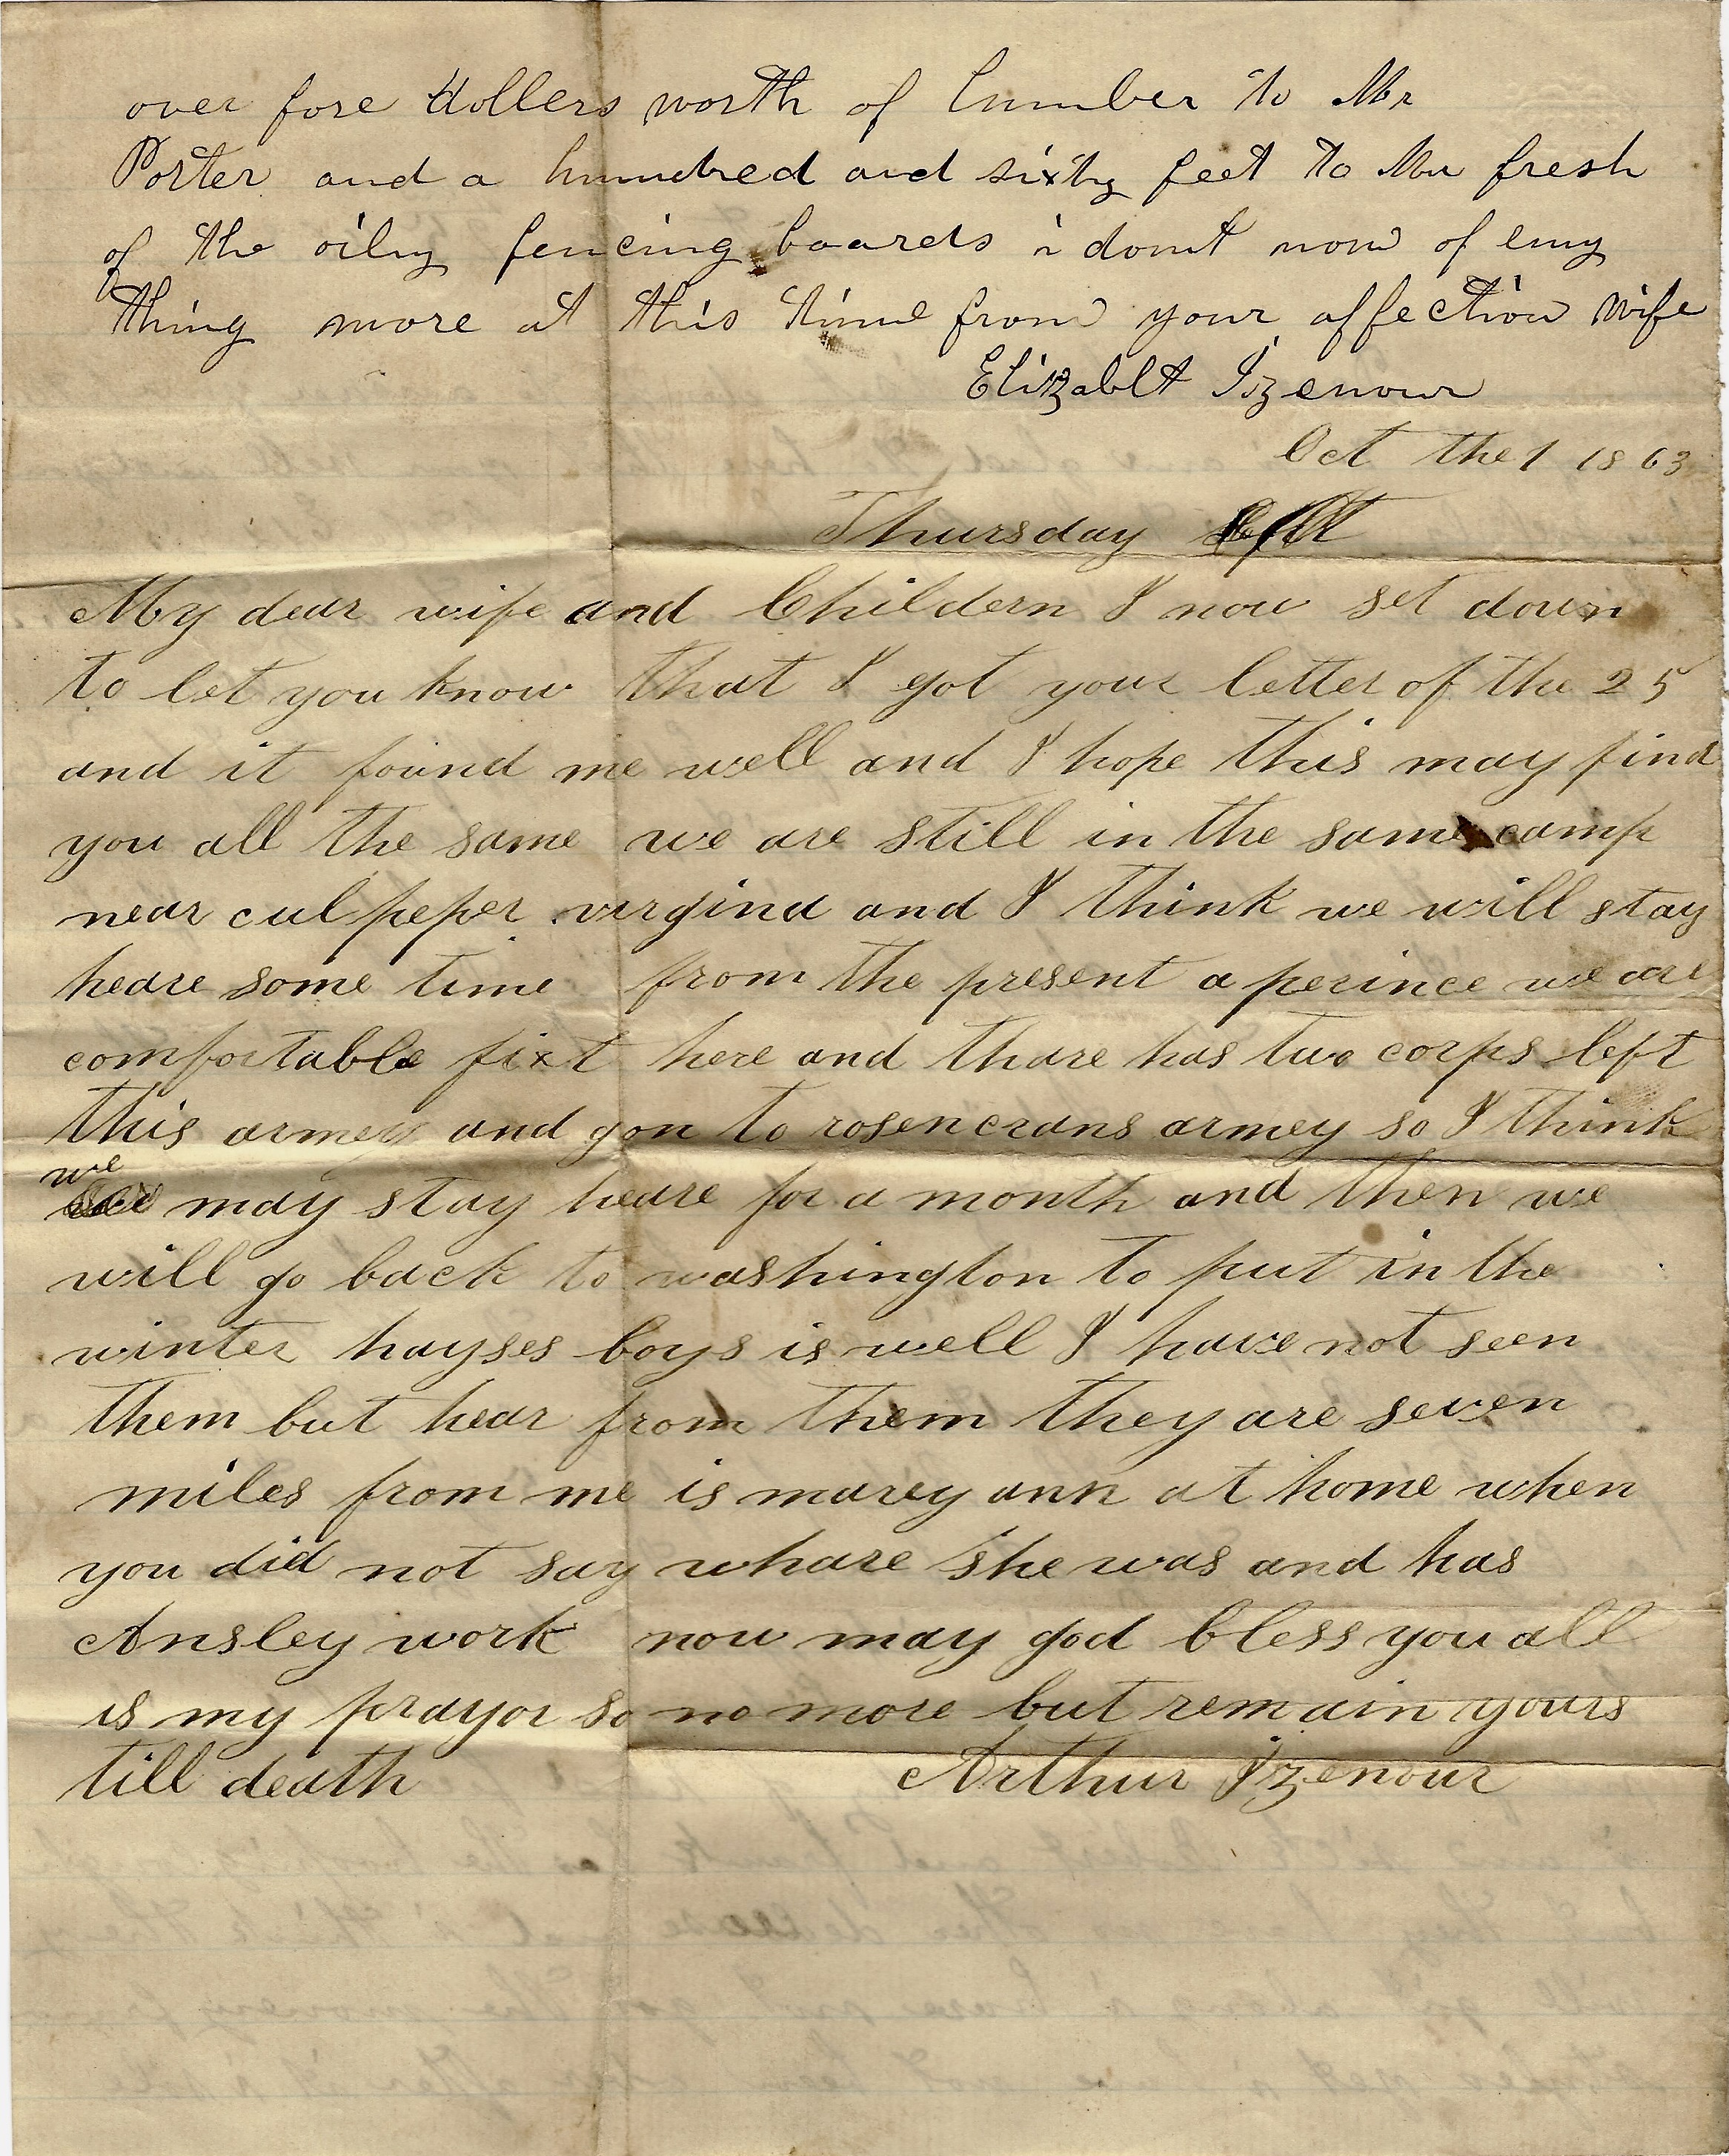 over fore dollers worth of lumber to Mr
Porter and a hundred and sixty feet to Mr fresh
of the oily fencing boards i domt now of eny
thing more at this time from your affection wife
Elizablt Izenour
Oct the 1 1863
Thursday
My dear wife and Childern I now set down
to let you know that I got your letter of the 25
and it found me well and I hope this may find
you all the same we are still in the same camp
near culpeper virgina and I think we will stay
heare some time from the present aperince we are
comfortable fixt here and thare has two corps left
this armey and gon to rosencrans armey so I think
we may stay heare for a month and then we
will go back to washington to put in the
winter hayses boys is well I have not seen
them but hear from them they are seven
miles from me is marey ann at home when
you did not say whare she was and has
Ansley work now may god bless you all
is my prayor so no more but remain yours
till death Arthur Izenour